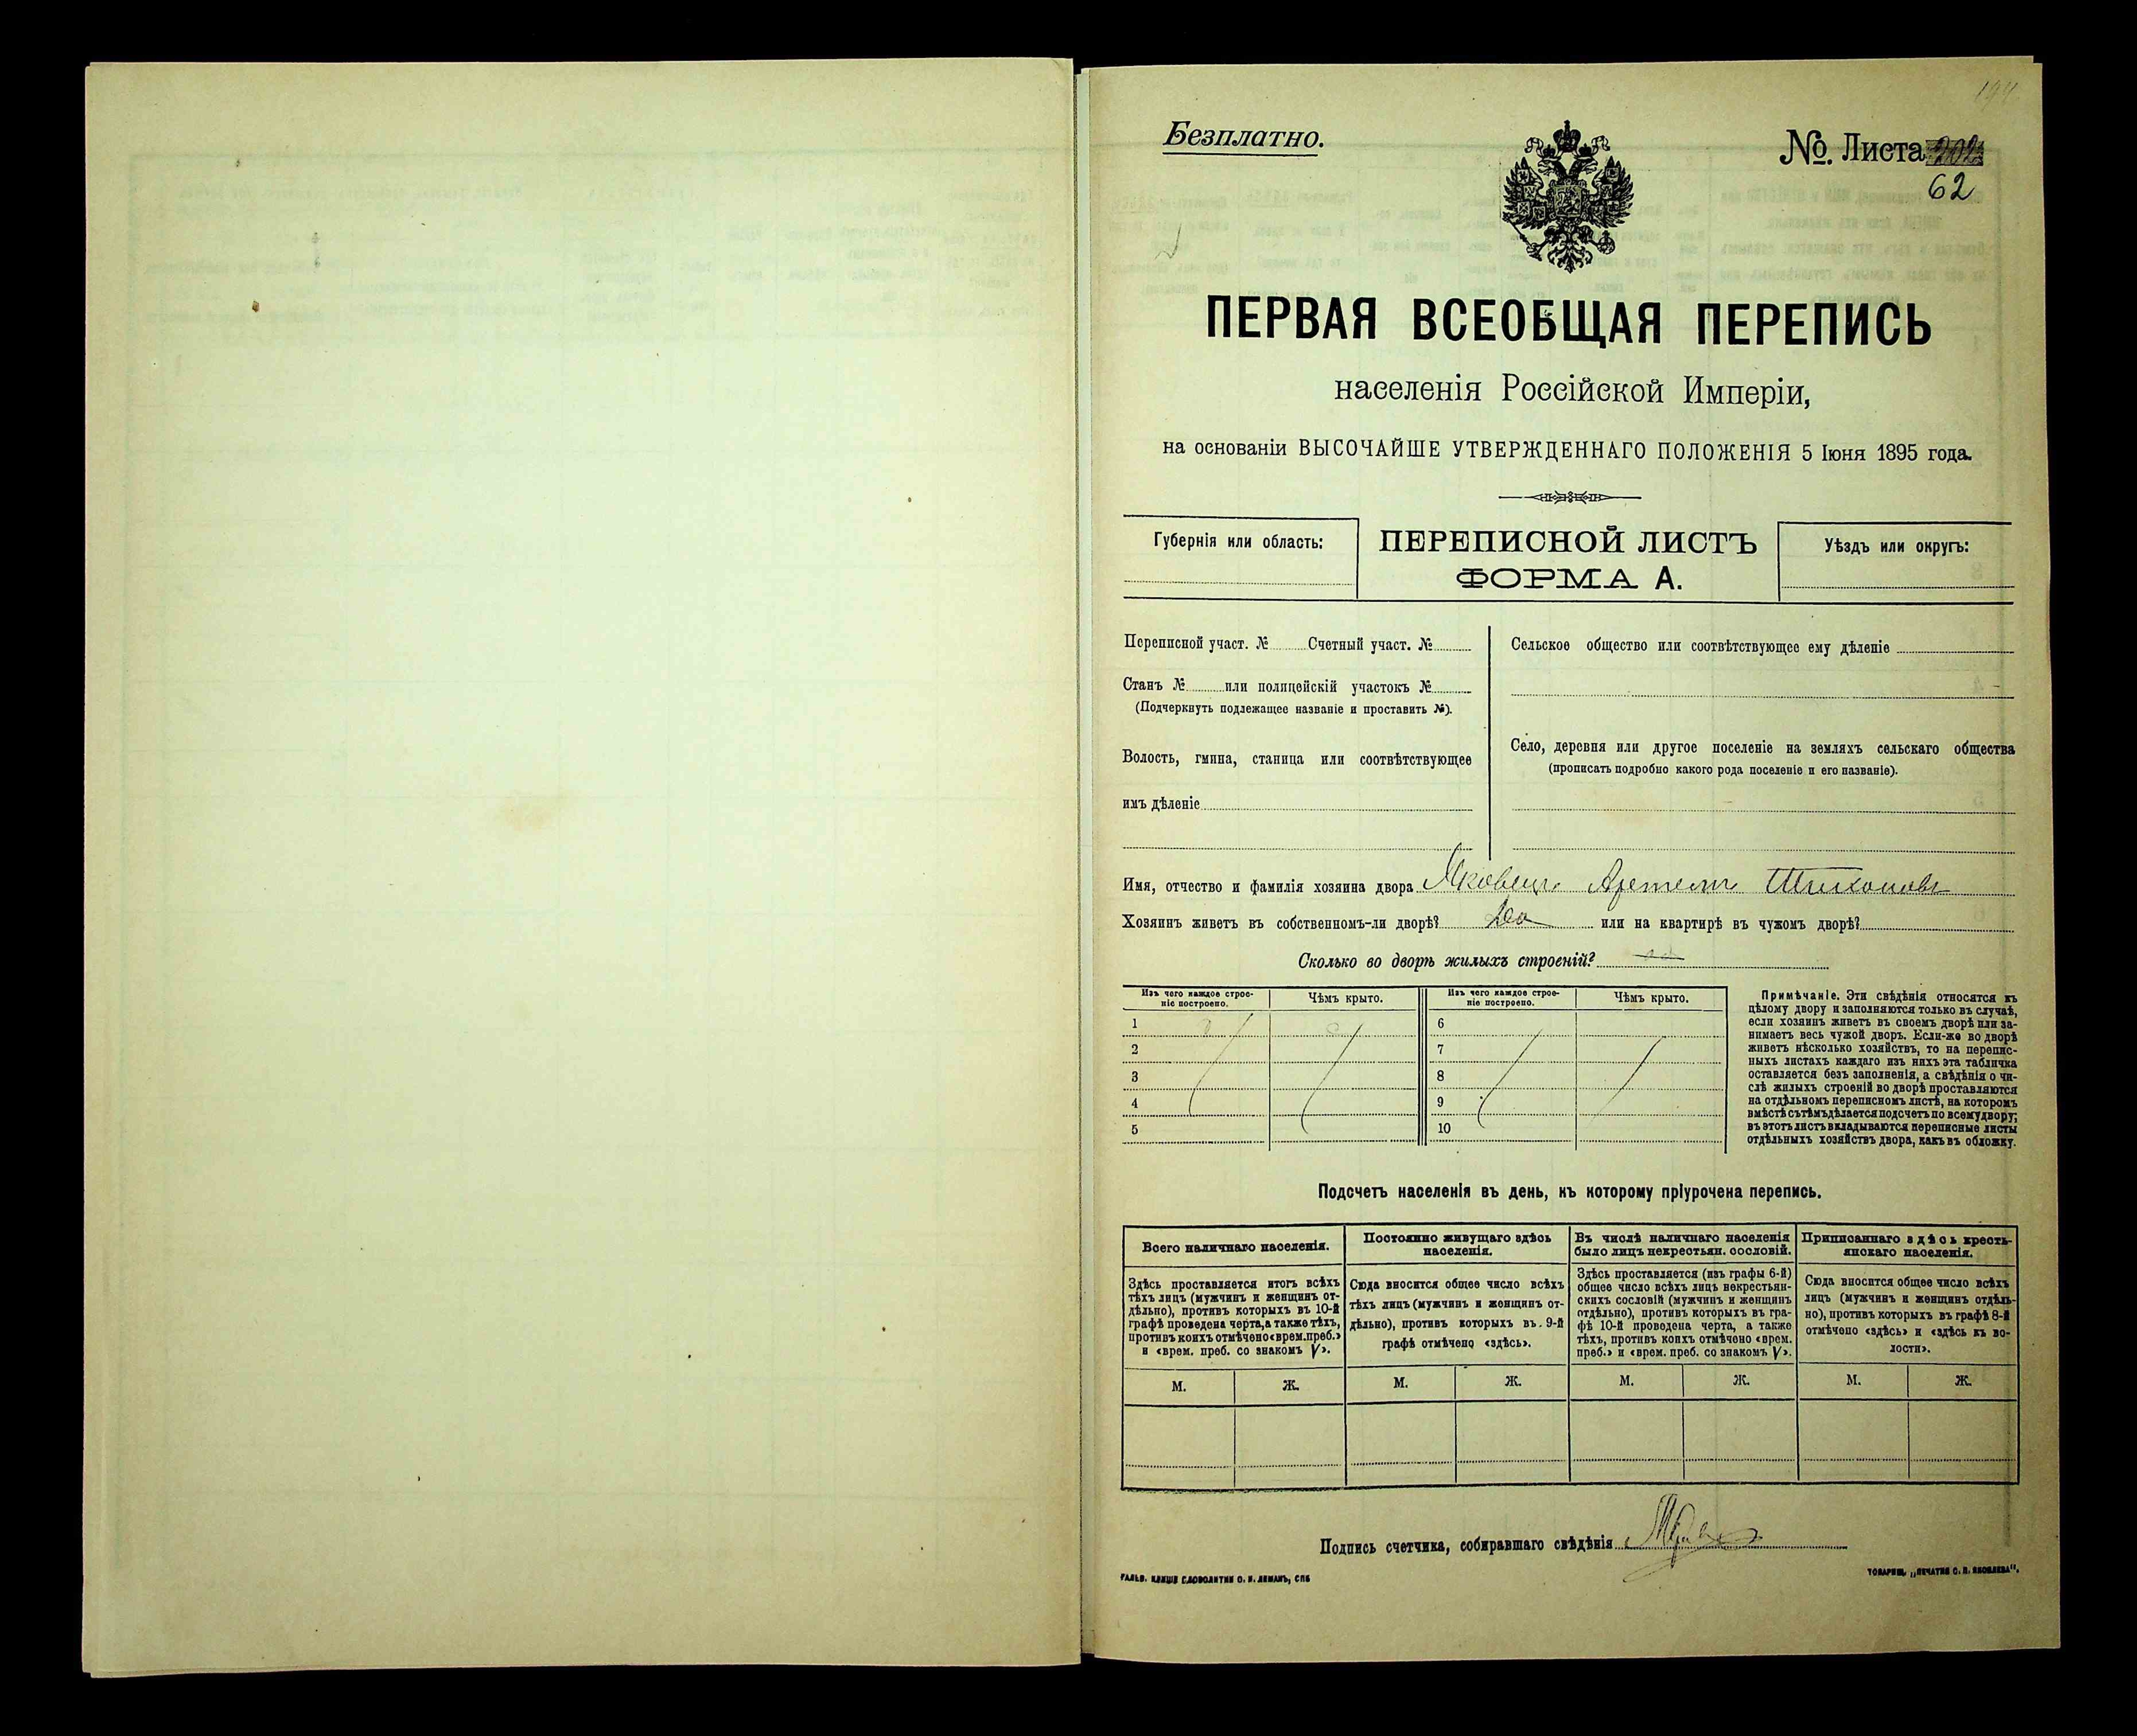 Безплатно.
№. Листа 202
62
ПЕРВАЯ ВСЕОБЩАЯ ПЕРЕПИСЬ
населенія Россійской Имперіи,
на основаніи ВЫСОЧАЙШЕ УТВЕРЖДЕННАГО ПОЛОЖЕНІЯ 5 Іюня 1895 года.
Губернія или область:
ПЕРЕПИСНОЙ ЛИСТЪ
ФОРМА А.
Уѣздъ или округъ:
Переписной участ. № Счетный участ. №
Станъ № или полицейскій участокъ №
(Подчеркнуть подлежащее названіе и проставить №).
Волость, гмина, станица или соотвѣтствующее
имъ дѣленіе
Сельское общество или соотвѣтствующее ему дѣленіе
Село, деревня или другое поселеніе на земляхъ сельскаго общества
(прописать подробно какого рода поселеніе и его названіе).
Имя, отчество и фамилія хозяина двора Яковецъ Артемъ Тихоновъ
Хозяинъ живетъ въ собственномъ-ли дворѣ? Да или на квартирѣ въ чужомъ дворѣ?
Сколько во дворѣ жилыхъ строеній?
Изъ чего каждое строе-
ніе построено.
Чѣмъ крыто.
Изъ чего каждое строе-
ніе построено.
Чѣмъ крыто.
1 6
2 7
3 8
4 9
5 10
Примѣчаніе. Эти свѣдѣнія относятся къ
цѣлому двору и заполняются только въ случаѣ,
если хозяинъ живетъ въ своемъ дворѣ или за-
нимаетъ весь чужой дворъ. Если-же во дворѣ
живетъ нѣсколько хозяйствъ, то на перепис-
ныхъ листахъ каждаго изъ нихъ эта табличка
оставляется безъ заполненія, а свѣдѣнія о чи-
слѣ жилыхъ строеній во дворѣ проставляются
на отдѣльномъ переписномъ листѣ, на которомъ
вмѣстѣ съ тѣмъ дѣлается подсчетъ по всему двору;
въ этотъ листъ вкладываются переписные листы
отдѣльныхъ хозяйствъ двора, какъ въ обложку.
Подсчетъ населенія въ день, къ которому пріурочена перепись.
Всего наличнаго населенія.
Здѣсь проставляется итогъ всѣхъ
тѣхъ лицъ (мужчинъ и женщинъ от-
дѣльно), противъ которыхъ въ 10-й
графѣ проведена черта, а также тѣхъ,
противъ коихъ отмѣчено «врем. преб.»
и «врем. преб. со знакомъ V».
Постоянно живущаго здѣсь
населенія.
Сюда вносится общее число всѣхъ
тѣхъ лицъ (мужчинъ и женщинъ от-
дѣльно), противъ которыхъ въ 9-й
графѣ отмѣчено «здѣсь».
Въ числѣ наличнаго населенія
было лицъ некрестьян. сословій.
Здѣсь проставляется (изъ графы 6-й)
общее число всѣхъ лицъ некрестьян-
скихъ сословій (мужчинъ и женщинъ
отдѣльно), противъ которыхъ въ гра-
фѣ 10-й проведена черта, а также
тѣхъ, противъ коихъ отмѣчено «врем.
преб.» и «врем. преб. со знакомъ V».
Приписаннаго здѣсь кресть-
янскаго населенія.
Сюда вносится общее число всѣхъ
лицъ (мужчинъ и женщинъ отдѣль-
но), противъ которыхъ въ графѣ 8-й
отмѣчено «здѣсь» и «здѣсь къ во-
лости».
М. Ж. М. Ж. М. Ж. М. Ж.
Подпись счетчика, собиравшаго свѣдѣнія
ГАЛЬВ. КЛИШЕ СЛОВОЛИТНИ О. И. ЛЕМАНЪ, СПБ
ТОВАРИЩ. „ПЕЧАТНЯ С. П. ЯКОВЛЕВА“.